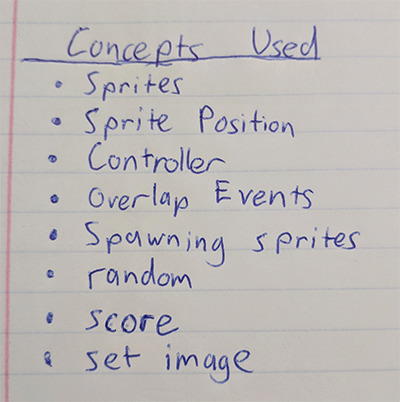 Concepts Used
• Sprites
• Sprite Position
• Controller
• Overlap Events
• Spawning sprites
• random
• score
• set image